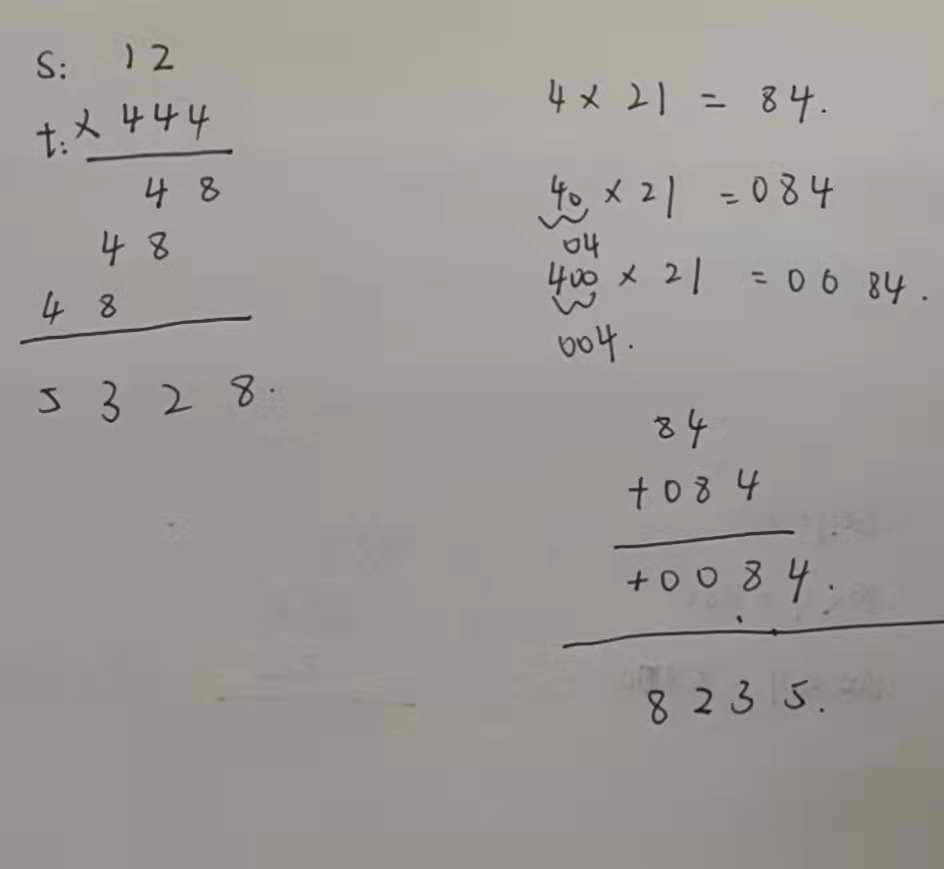 S: 12
t: × 444
48
48
48
5 3 2 8.
4 × 21 = 84.
40 × 21 = 084
04
400 × 21 = 0084.
004.
84
+084
+0084.
8235.